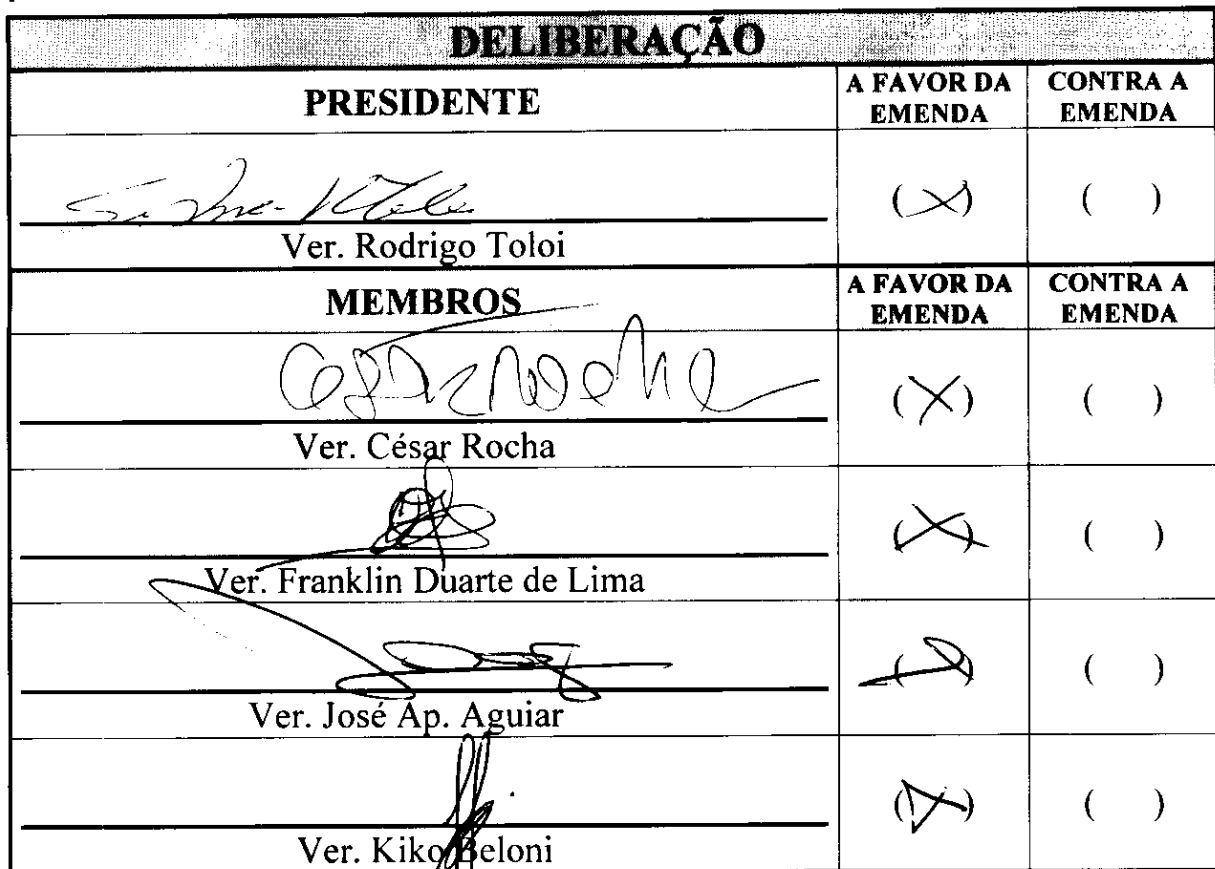 DELIBERAÇÃO
PRESIDENTE A FAVOR DA EMENDA CONTRA A EMENDA
(X) ( )
Ver. Rodrigo Toloi
MEMBROS A FAVOR DA EMENDA CONTRA A EMENDA
César Rocha (X) ( )
Ver. César Rocha
(X) ( )
Ver. Franklin Duarte de Lima
( ) ( )
Ver. José Ap. Aguiar
(X) ( )
Ver. Kiko Beloni